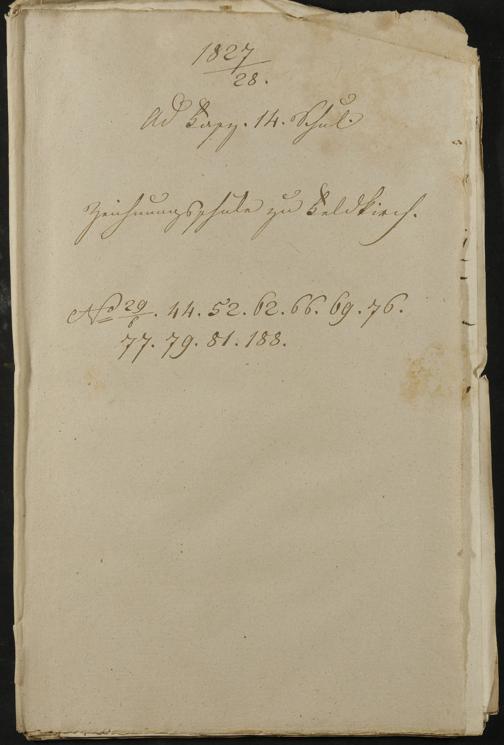 1827
28.
Ad Fasz. 14. Schul.
Zeichnungsschule zu Feldkirch.
No 29/6. 44. 52. 62. 66. 69. 76.
77. 79. 81. 188.